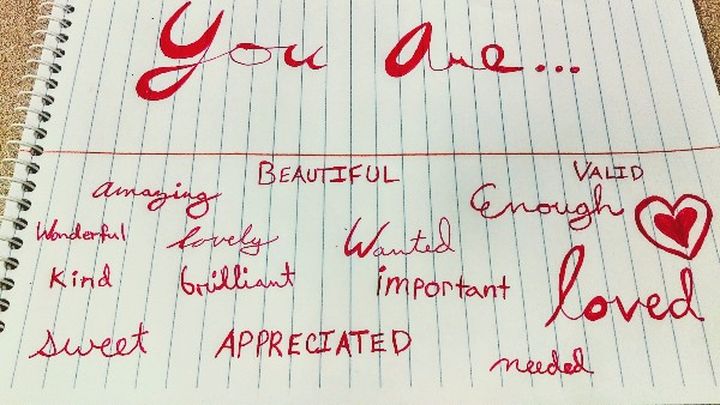 You Are...
BEAUTIFUL VALID
amazing Enough
Wonderful lovely Wanted
Kind brilliant important loved
sweet APPRECIATED needed